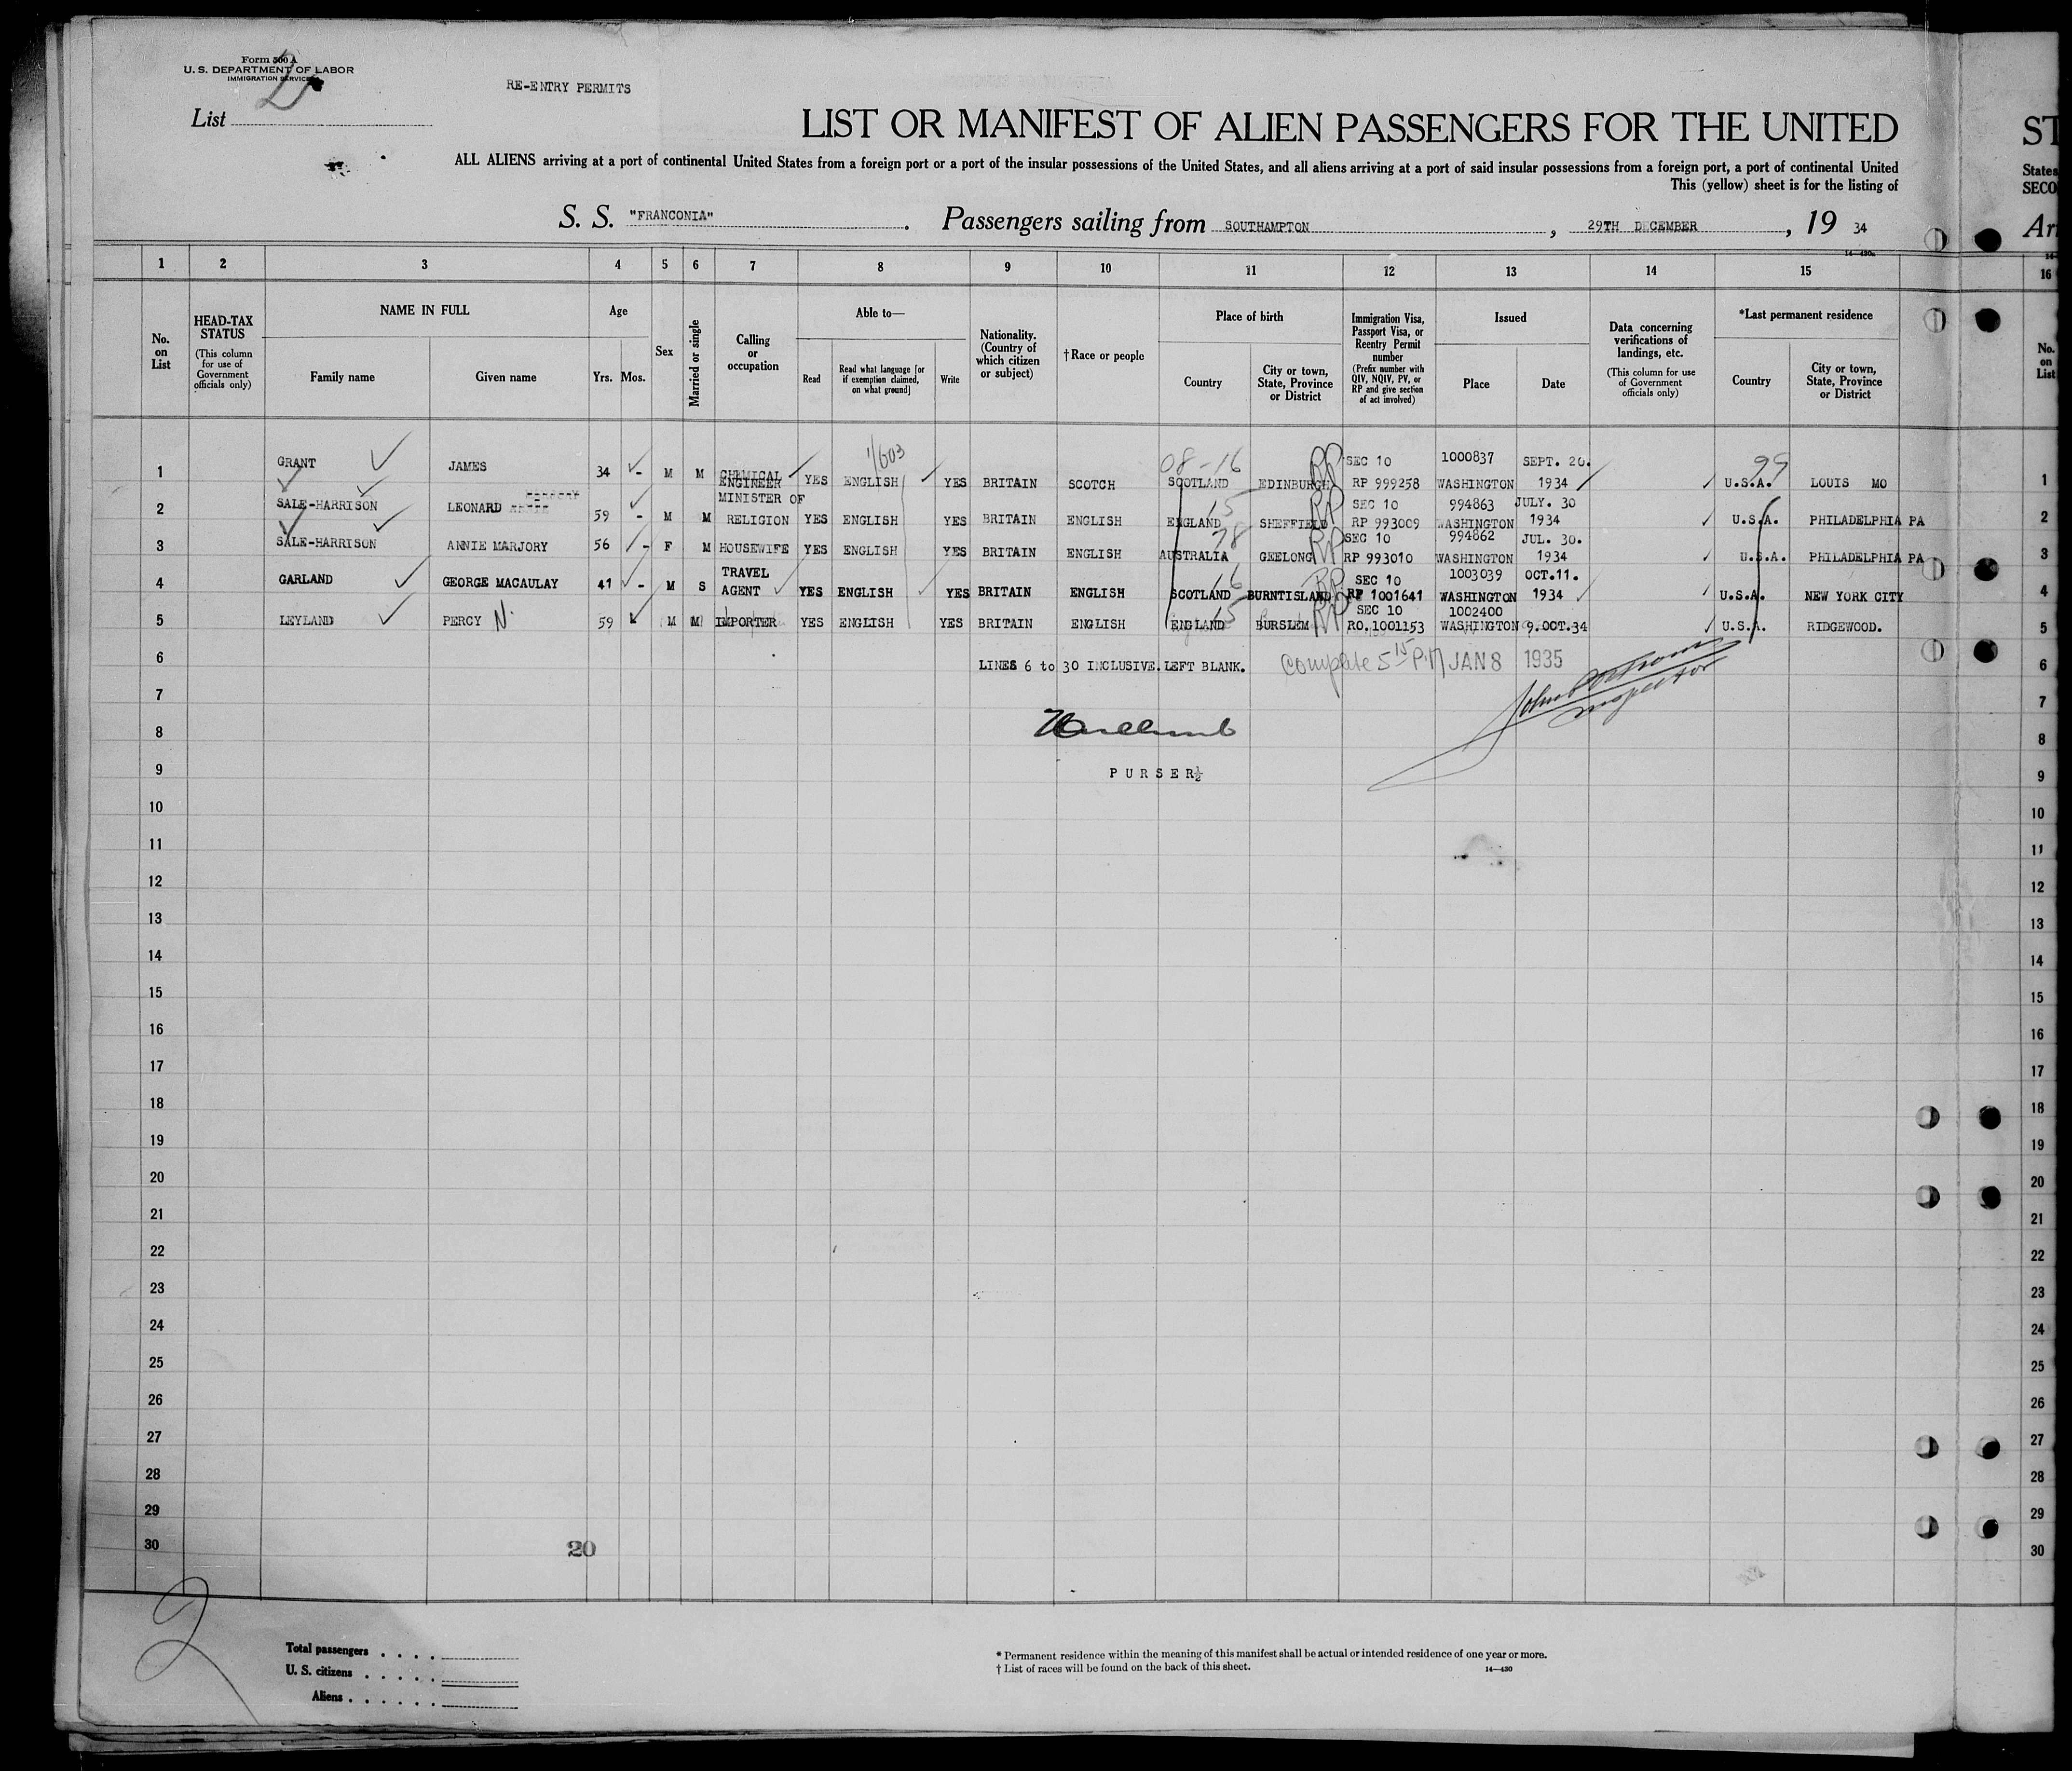 Form 500 A
U. S. DEPARTMENT OF LABOR
IMMIGRATION SERVICE
List
RE-ENTRY PERMITS
LIST OR MANIFEST OF ALIEN PASSENGERS FOR THE UNITED
ST
ALL ALIENS arriving at a port of continental United States from a foreign port or a port of the insular possessions of the United States, and all aliens arriving at a port of said insular possessions from a foreign port, a port of continental United
States
This (yellow) sheet is for the listing of
SECO
S. S. "FRANCONIA". Passengers sailing from SOUTHAMPTON, 29TH DECEMBER, 19 34
Ar
14—430a
1 2 3 4 5 6 7 8 9 10 11 12 13 14 15 16
No. on List
HEAD-TAX STATUS
(This column for use of Government officials only)
NAME IN FULL
Family name Given name
Age
Yrs. Mos.
Sex
Married or single
Calling or occupation
Able to—
Read
Read what language [or if exemption claimed, on what ground]
Write
Nationality. (Country of which citizen or subject)
†Race or people
Place of birth
Country
City or town, State, Province or District
Immigration Visa, Passport Visa, or Reentry Permit number
(Prefix number with QIV, NQIV, PV, or RP and give section of act involved)
Issued
Place Date
Data concerning verifications of landings, etc.
(This column for use of Government officials only)
*Last permanent residence
Country
City or town, State, Province or District
No. on List
1/603 08-16 99
1 GRANT JAMES 34 - M M CHEMICAL ENGINEER YES ENGLISH YES BRITAIN SCOTCH SCOTLAND EDINBURGH RP SEC 10 RP 999258 1000837 WASHINGTON SEPT. 20. 1934 U.S.A. LOUIS MO 1
2 SALE-HARRISON LEONARD 59 - M M MINISTER OF RELIGION YES ENGLISH YES BRITAIN ENGLISH 15 ENGLAND SHEFFIELD RP SEC 10 RP 993009 994863 WASHINGTON JULY. 30 1934 U.S.A. PHILADELPHIA PA 2
3 SALE-HARRISON ANNIE MARJORY 56 - F M HOUSEWIFE YES ENGLISH YES BRITAIN ENGLISH 78 AUSTRALIA GEELONG RP SEC 10 RP 993010 994862 WASHINGTON JUL. 30. 1934 U.S.A. PHILADELPHIA PA 3
4 GARLAND GEORGE MACAULAY 41 - M S TRAVEL AGENT YES ENGLISH YES BRITAIN ENGLISH 16 SCOTLAND BURNTISLAND RP SEC 10 RP 1001641 1003039 WASHINGTON OCT.11. 1934 U.S.A. NEW YORK CITY 4
5 LEYLAND PERCY N. 59 M M IMPORTER YES ENGLISH YES BRITAIN ENGLISH 15 ENGLAND BURSLEM RP SEC 10 RO.1001153 1002400 WASHINGTON 9.OCT.34 U.S.A. RIDGEWOOD. 5
6 LINES 6 to 30 INCLUSIVE. LEFT BLANK. Complete 5 15 P.M JAN 8 1935 6
7 Inspector 7
8 8
9 PURSER½ 9
10 10
11 11
12 12
13 13
14 14
15 15
16 16
17 17
18 18
19 19
20 20
21 21
22 22
23 23
24 24
25 25
26 26
27 27
28 28
29 29
30 20 30
2
Total passengers
U. S. citizens
Aliens
* Permanent residence within the meaning of this manifest shall be actual or intended residence of one year or more.
† List of races will be found on the back of this sheet.
14—430